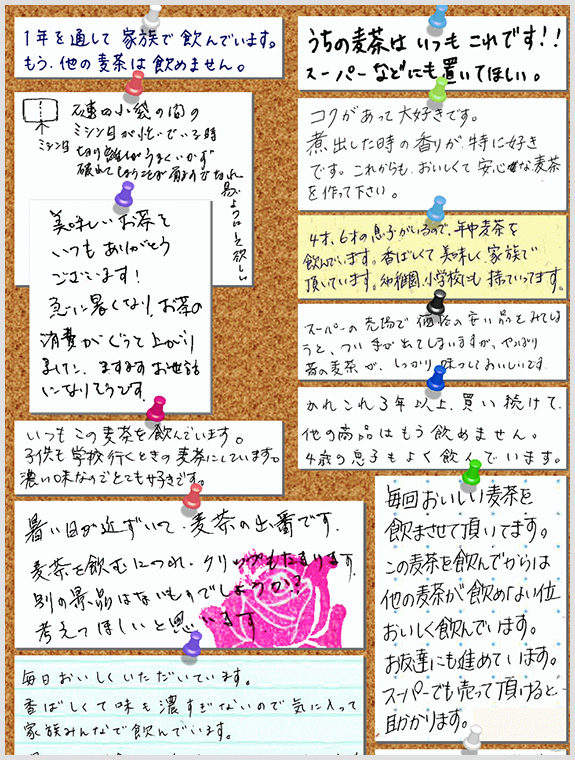 1年を通して 家族で 飲んでいます。
もう、他の麦茶は飲めません。
うちの麦茶は いつも これです!!
スーパーなどにも置いてほしい。
コクがあって大好きです。
煮出した時の香りが特に好き
です。これからも、おいしくて 安心な麦茶
を作って下さい。
小袋の間の
ミシン目
ミシン目が
美味しいお茶を
いつもありがとう
ございます!
急に暑くなり、お茶の
消費がぐっと上がり
ました、ますますお世話
になりそうです。
4才、6才の息子がいるので、年中麦茶を
飲んでいます。香ばしくて美味しく、家族で
頂いています。幼稚園、小学校にも 持っていってます。
スーパーの売場で価格の安い品をみてしま
うと、つい手が出てしまいますが、やっぱり
麦茶が、しっかり味っておいしいです。
かれこれ3年以上、買い続けて、
他の商品はもう飲めません。
4歳の息子もよく飲んでいます。
いつもこの麦茶を飲んでいます。
子供も学校行くときの麦茶にしています。
濃い味なのでとても好きです。
暑い日が近ずいて、麦茶の出番です。
麦茶を飲むにつれ、クリップもたまります。
別の景品はないものでしょうか?
考えてほしいと思います
毎回おいしい麦茶を
飲まさせて頂いてます。
この麦茶を飲んでからは
他の麦茶が飲めない位
おいしく飲んでいます。
お友達にも進めています。
スーパーでも売って頂けると
助かります。
毎日おいしくいただいています。
香ばしくて味も濃すぎないので気に入って
家族みんなで飲んでいます。